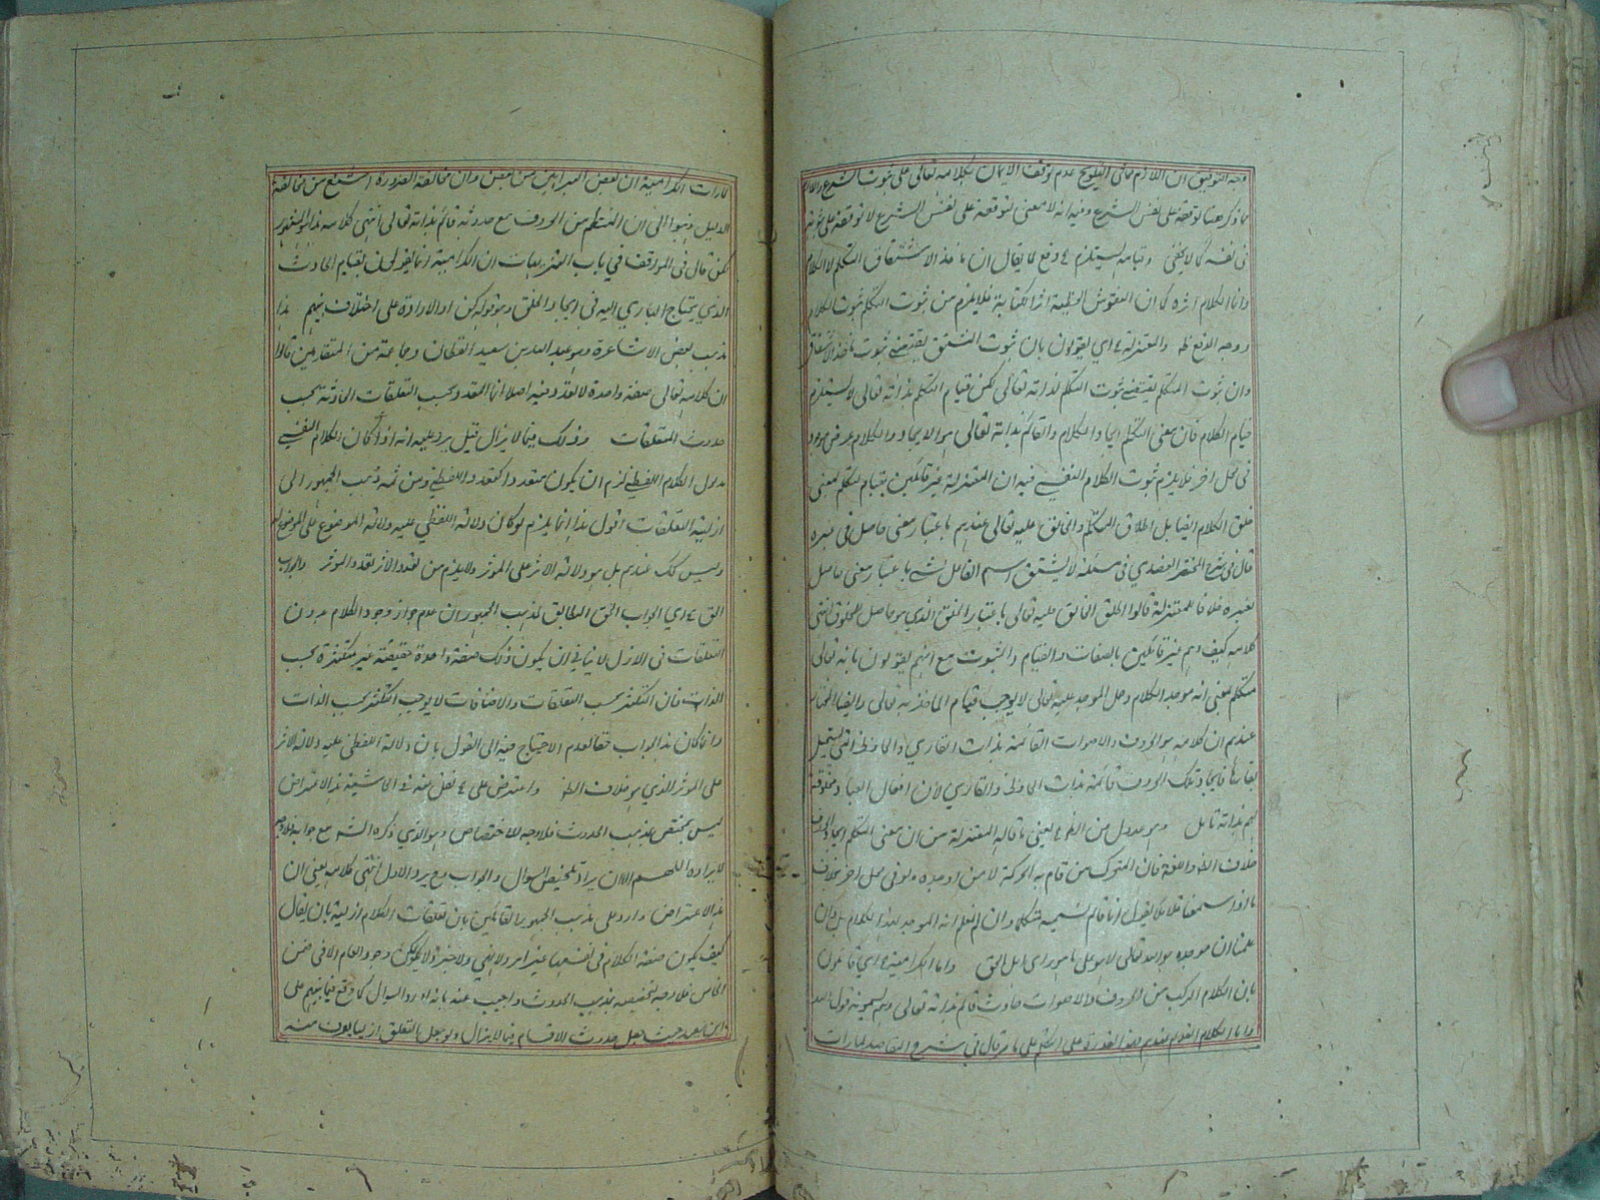 وجه التوفيق ان اللازم مما في التلويح عدم توقف الايمان بكلامه تعالى على ثبوت الشرع واللازم
مما ذكر هنا توقفه على نفس الشرع وفيه انه لا معنى لتوقفه على نفس الشرع لا توقفه على ثبوته
في نفسه كما لا يخفى وقيامه يستلزم دفع لما يقال ان ماخذ الاشتقاق التكلم لا الكلام
وانما الكلام اثره كما ان النقوش الخطية اثر الكتابة فلا يلزم من ثبوت التكلم ثبوت الكلام
ووجه الدفع ظ والمعتزلة اي يقولون بان ثبوت المشتق يقتضي ثبوت ماخذ الاشتقاق
وان ثبوت المتكلم يقتضي ثبوت التكلم لذاته تعالى لكن قيام التكلم بذاته تعالى لا يستلزم
قيام الكلام فان معنى التكلم ايجاد الكلام والقائم بذاته تعالى هو الايجاد والكلام عرض موجود
في محل اخر فلا يلزم ثبوت الكلام النفسي فيه ان المعتزلة غير قائلين بقيام التكلم بمعنى
خلق الكلام ايضا بل اطلاق المتكلم والخالق عليه تعالى عندهم باعتبار معنى حاصل في غيره
قال في شرح المختصر العضدي في مسئلة لا يشتق اسم الفاعل لشيء باعتبار معنى حاصل
لغيره خلافا للمعتزلة قالوا اطلق الخالق عليه تعالى باعتبار الخلق الذي هو حاصل للمخلوق انتهى
كلامه كيف وهم غير قائلين بالصفات والقيام والثبوت مع انهم يقولون بانه تعالى
متكلم بمعنى انه موجد الكلام وحمل الموجد عليه تعالى لا يوجب قيام الماخذ به تعالى وايضا المختار
عندهم ان كلامه هو الحروف والاصوات القائمة بذات القاري والحافظ
بقائها فايجاد تلك الحروف قائمة بذات الحافظ والقاري لان افعال العباد مخلوقة
لهم بذاته تامل وهو عدول من الظ يعني ما قاله المعتزلة من ان معنى التكلم ايجاد الحروف
خلاف الظ واللغة فان المتحرك من قام به الحركة لا من اوجدها ولو في محل اخر بخلاف
ما اذا سمعنا قائلا يقول انا قائم نسميه متكلما وان لم نعلم انه الموجد لهذا الكلام بل وان
علمنا ان موجده هو الله تعالى لا هو على ما هو راى اهل الحق واما الكرامية اي قائلون
بان الكلام المركب من الحروف والاصوات حادث قائم بذاته تعالى وهم يسمونه قول الله
واما الكلام القديم عندهم فهو القدرة على التكلم على ما قال في شرح المقاصد لما رات
لما رات الكرامية ان بعض الشر اهون من بعض وان مخالفة الضرورة اشنع من مخالفة
الدليل ذهبوا الى ان المنتظم من الحروف مع حدوثه قائم بذاته تعالى انتهى كلامه
لكن قال في المواقف في باب التنزيهات ان الكرامية انما يقولون بقيام الحادث
الذي يحتاج الباري اليه في ايجاد الخلق وهو قوله كن او الارادة على اختلاف بينهم هذا
مذهب بعض الاشاعرة وهو عبد الله بن سعيد القطان وجماعة من المتقدمين قالوا
ان كلامه تعالى صفة واحدة لا تعدد فيه اصلا انما التعدد بحسب التعلقات الحادثة بحسب
حدوث المتعلقات وذلك فيما لا يزال قيل يرد عليه انه اذا كان الكلام النفسي
مدلول الكلام اللفظي لزم ان يكون متعددا كتعدد اللفظي ومن ثمه ذهب الجمهور الى
ازلية التعلقات اقول هذا انما يلزم لو كان دلالة اللفظي عليه دلالة الموضوع على الموضوع له
وليس كك عندهم بل هو دلالة الاثر على الموثر ولا يلزم من تعدد الاثر تعدد الموثر والجواب
الحق اي الجواب الحق المطابق لمذهب الجمهور ان عدم جواز وجود الكلام بدون
التعلقات في الازل لا ينافي ان يكون ذلك صفة واحدة حقيقة غير متكثرة بحسب
الذات فان التكثر بحسب التعلقات والاضافات لا يوجب التكثر بحسب الذات
وانما كان هذا الجواب حقا لعدم الاحتياج فيه الى القول بان دلالة اللفظي عليه دلالة الاثر
على الموثر الذي هو خلاف الظ واعترض على نقل عنه في الحاشية هذا الاعتراض
ليس بمختص بمذهب الحدوث فلا وجه للاختصاص وهو الذي ذكره الشه مع جوابه فلا وجه
لايراده اللهم الا ان يراد تلخيص السؤال والجواب مع يرد الاول انتهى كلامه يعني ان
هذا الاعتراض وارد على مذهب الجمهور القائلين بان تعلقات الكلام ازلية بان يقال
كيف يكون صفة الكلام في نفسها غير امر ولا نهي ولا خبر ولا يمكن وجود العام الا في ضمن
الخاص فلا وجه لتخصيصه بمذهب الحدوث واجيب عنه بانه اورد السوال كما وقع فيما بينهم على
ابن سعيد حيث جعل حدوث الاقسام فيما لا يزال ولو جعل التعلق ازليا يعرف منه